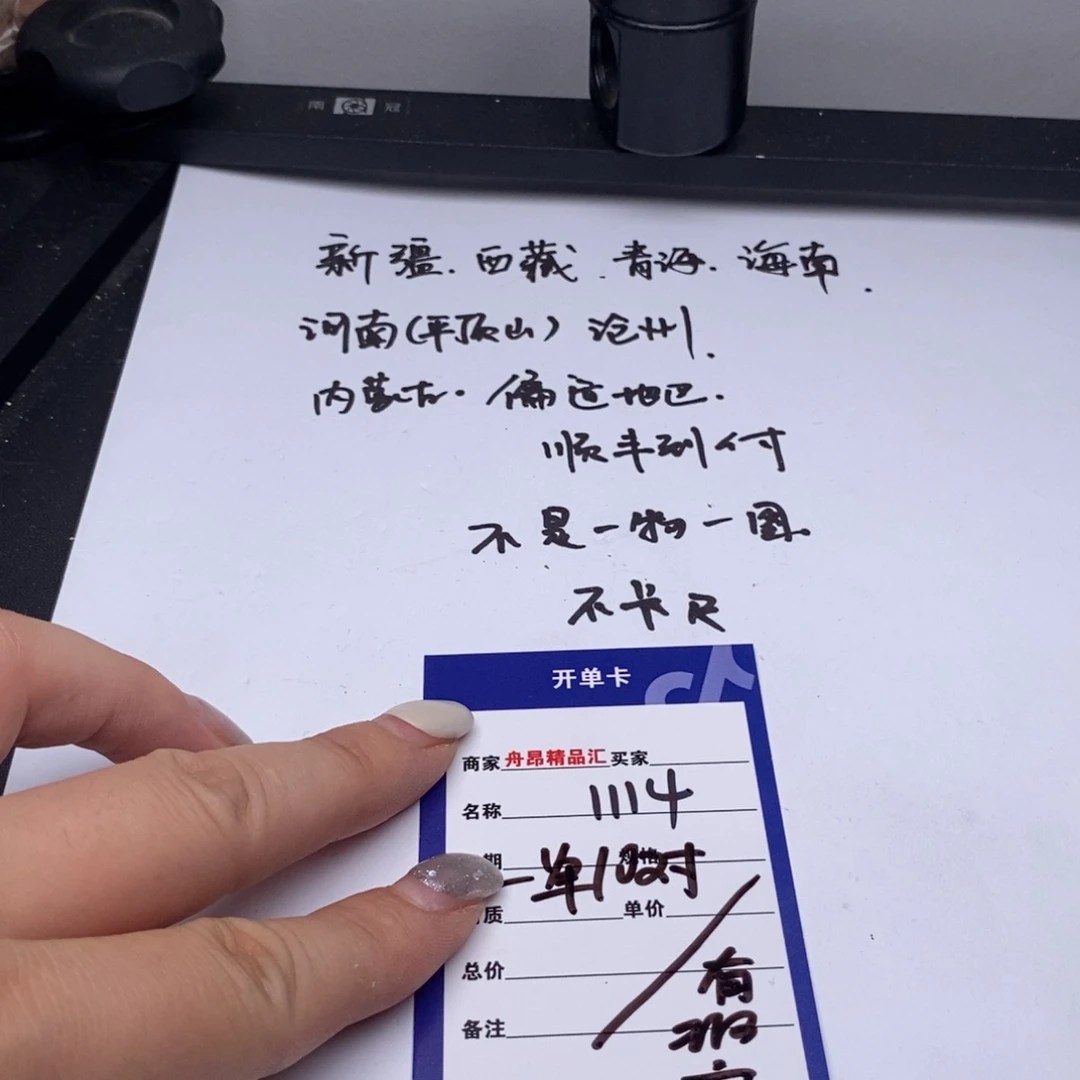 南 冠
新疆.西藏.青海.海南.
河南(平顶山)沧州.
内蒙古.偏远地区.
顺丰到付
不是一物一图.
不卡尺
开单卡
商家 舟昂精品汇 买家
名称 1114
期 规格
一单10对
质 单价
总价
有
备注